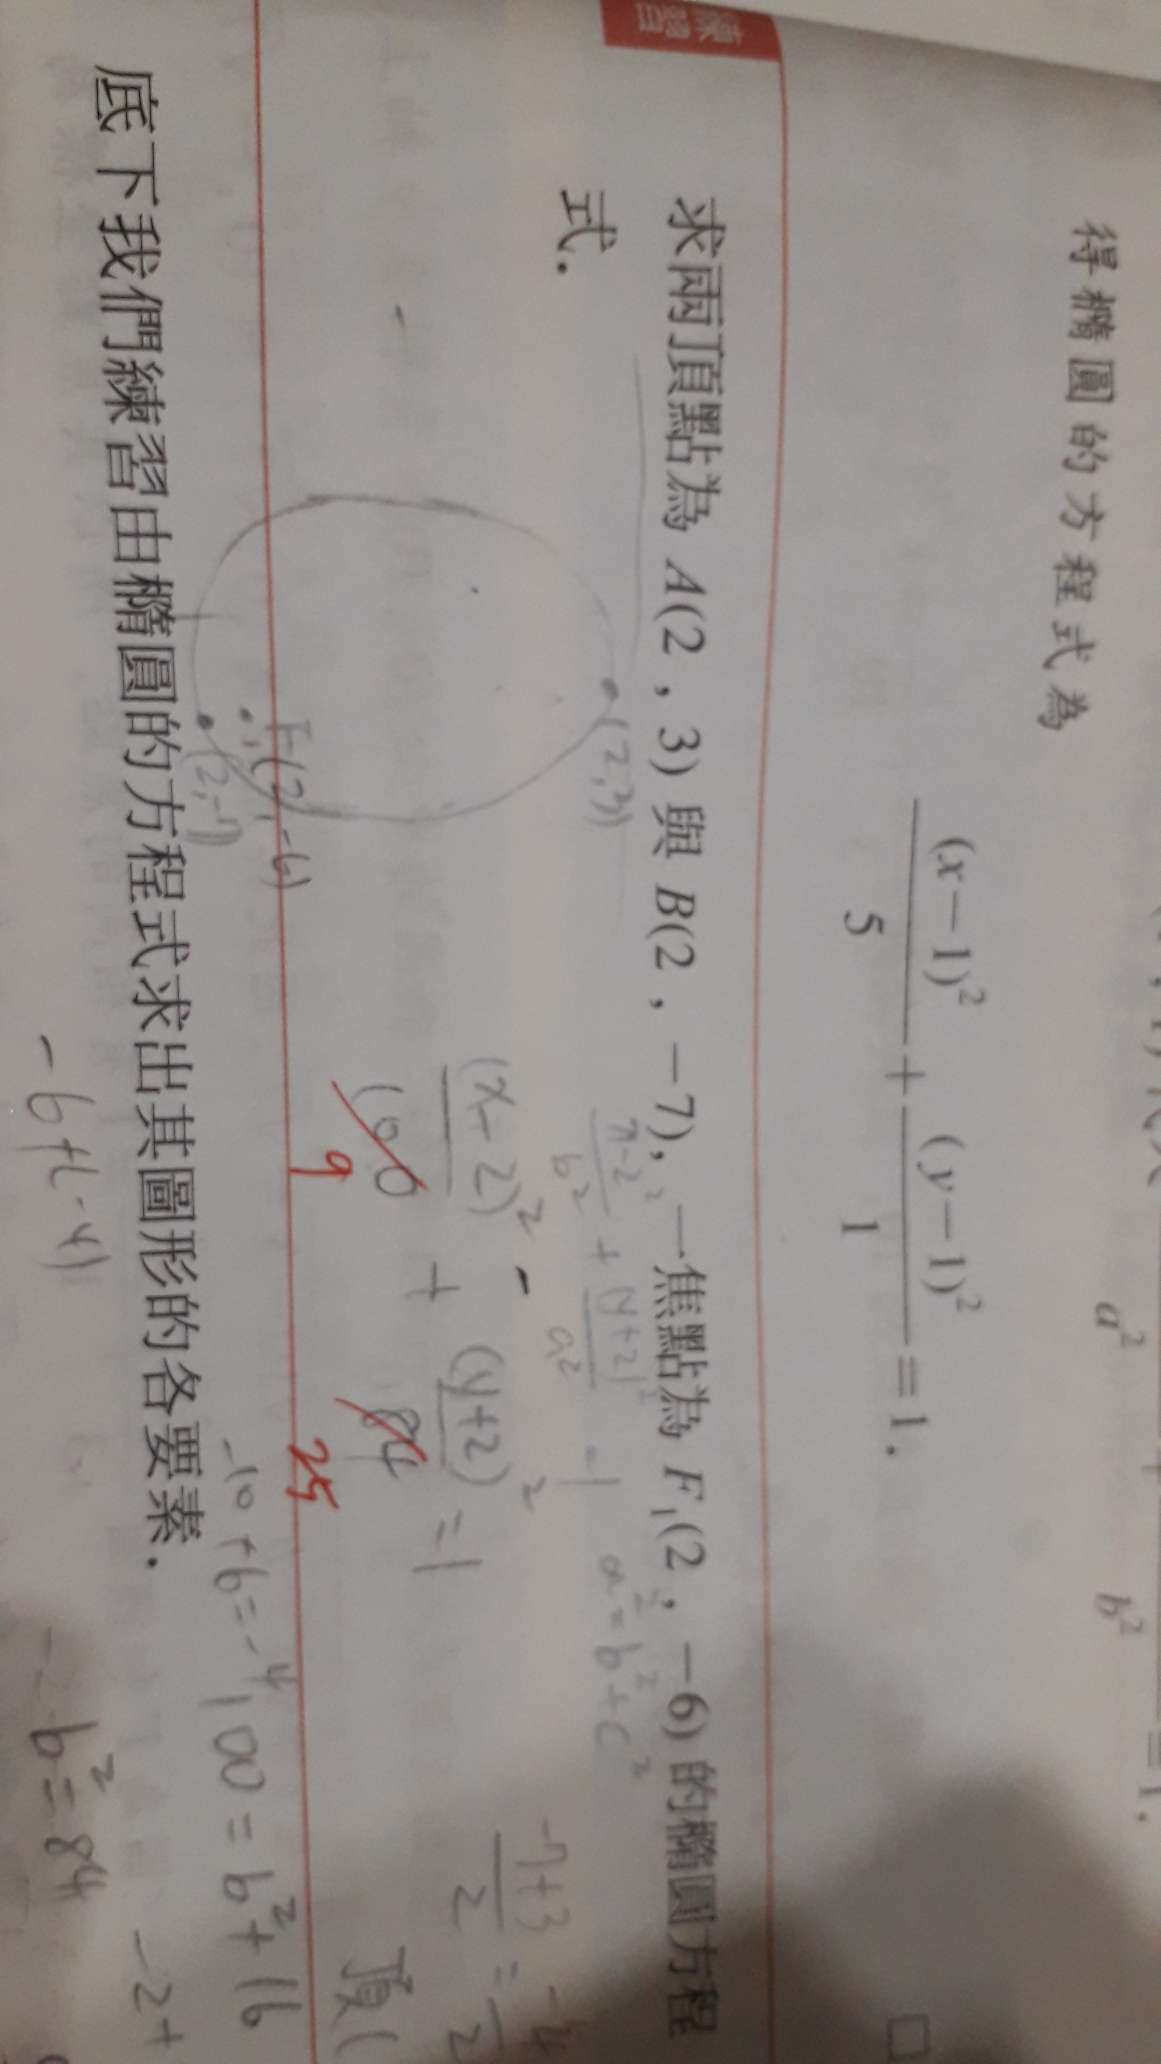 a² b² =1.
得橢圓的方程式為
(x−1)²/5 + (y−1)²/1 =1.
□
練習
求兩頂點為 A(2 , 3) 與 B(2 , −7), 一焦點為 F₁(2 , −6) 的橢圓方程
式.
(2,3)
x-2²/b² + (y+2)²/a² = 1
a²=b²+c²
(x-2)²/100 + (y+2)²/84 =1
9 25
-7+3/2 = -4/2
頂(
F(2,-6)
(2,-7)
-10+6=-4
100=b²+16
底下我們練習由橢圓的方程式求出其圖形的各要素.
-2+
-6+(-4)
b²=84